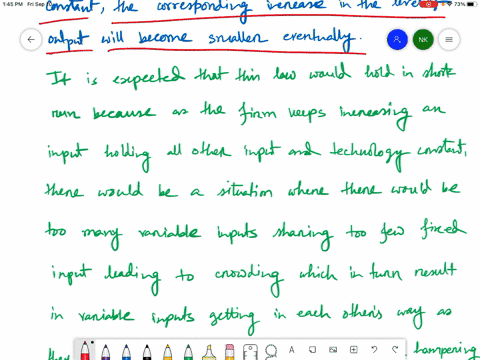 1:45 PM Fri Sep
73%
constant, the corresponding increase in the level
output will become smaller eventually.
NK
It is expected that this law would hold in short
run because as the firm keeps increasing an
input holding all other input and technology constant,
there would be a situation where there would be
too many variable inputs sharing too few fixed
input leading to crowding which in turn result
in variable inputs getting in each other's way as
hampering